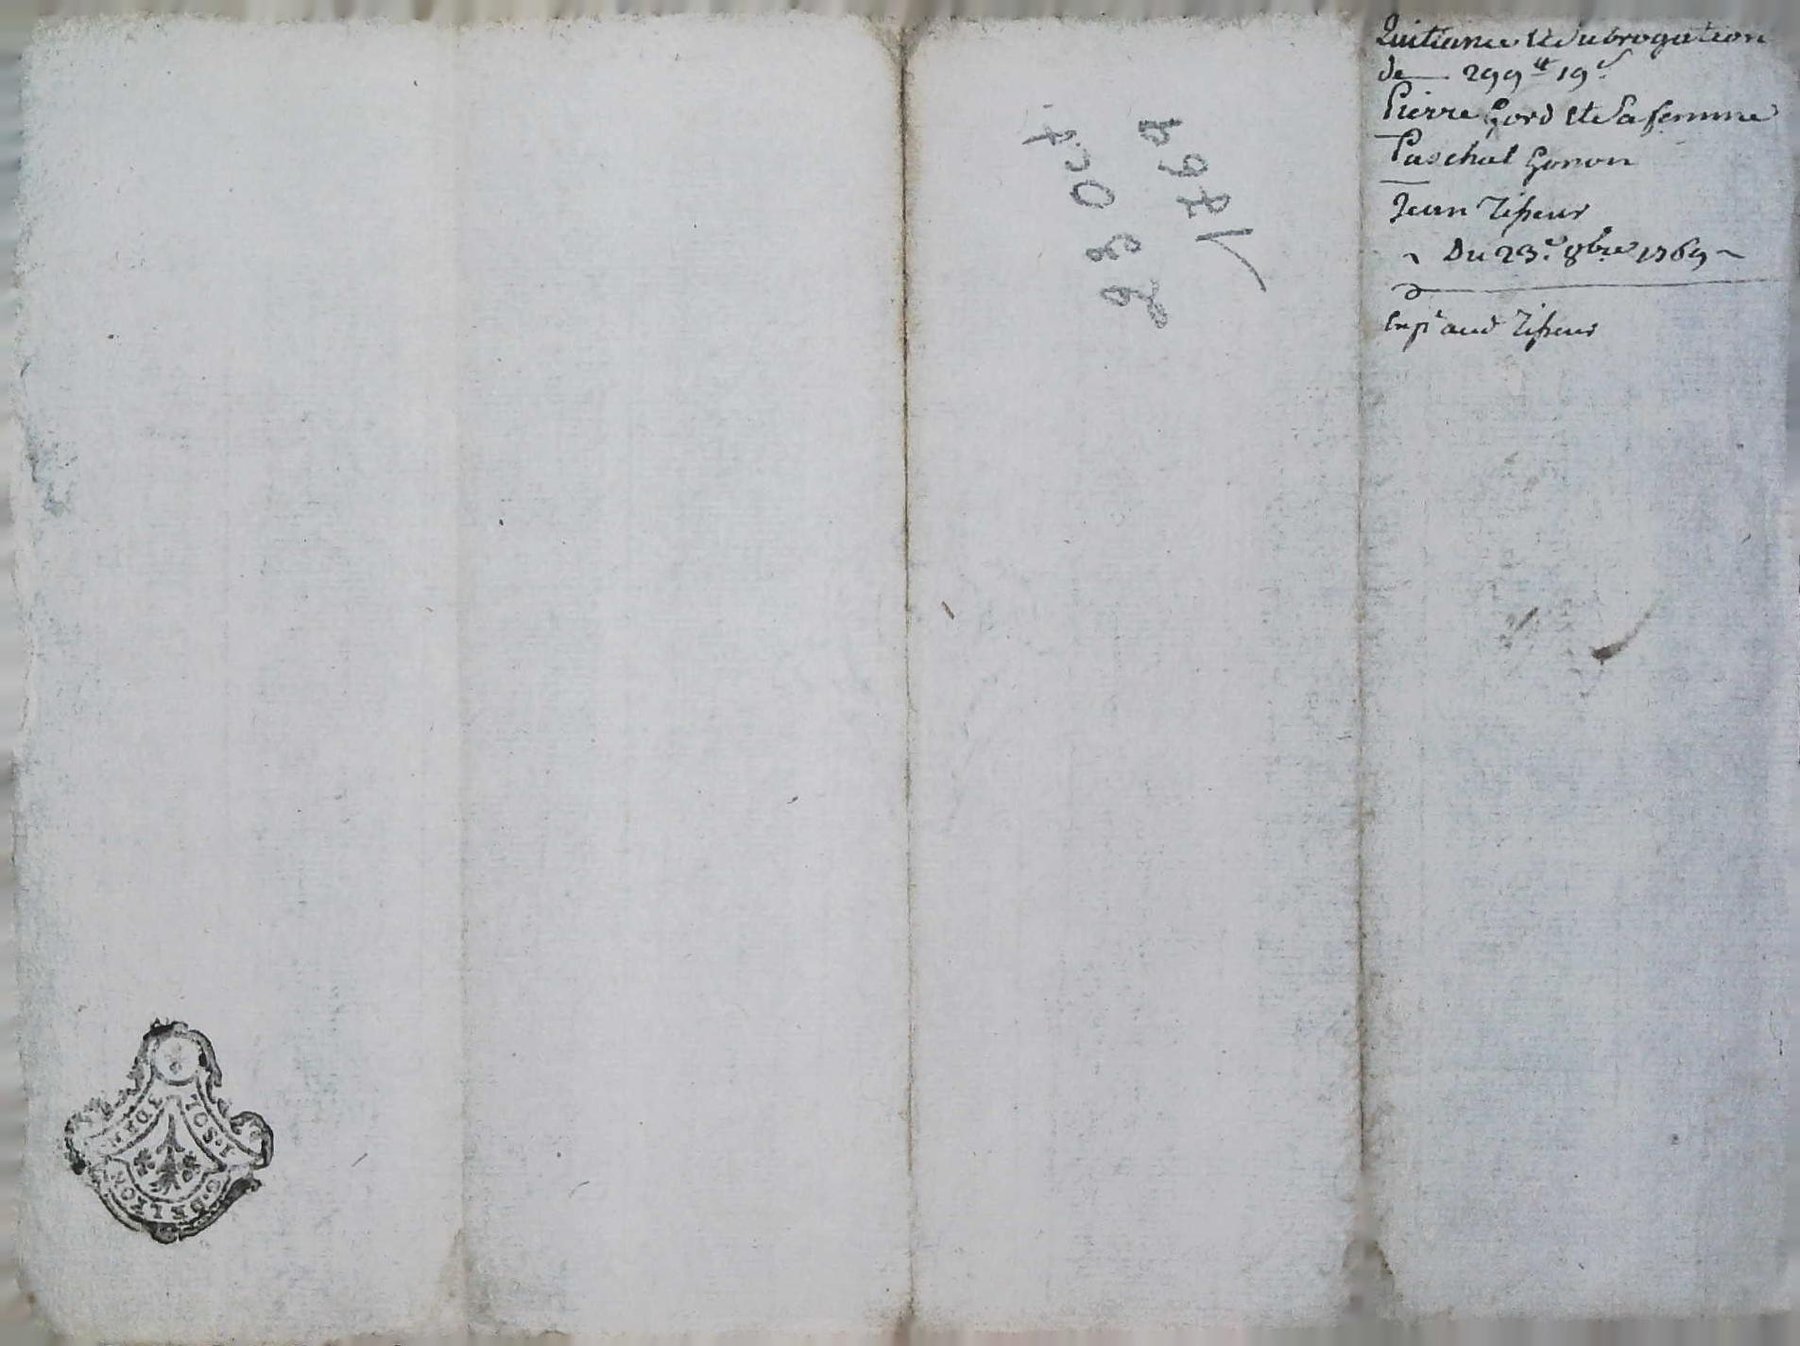 Quittance Et Subrogation
de 299ᵗᵗ 19ˢ
Pierre Gord Et Sa femme
Paschal Gonon
Jean Tisseur
Du 23.ᵉ 8bre 1769
Expᵉ aud Tisseur
23 Oct
1769
G. DE LYON